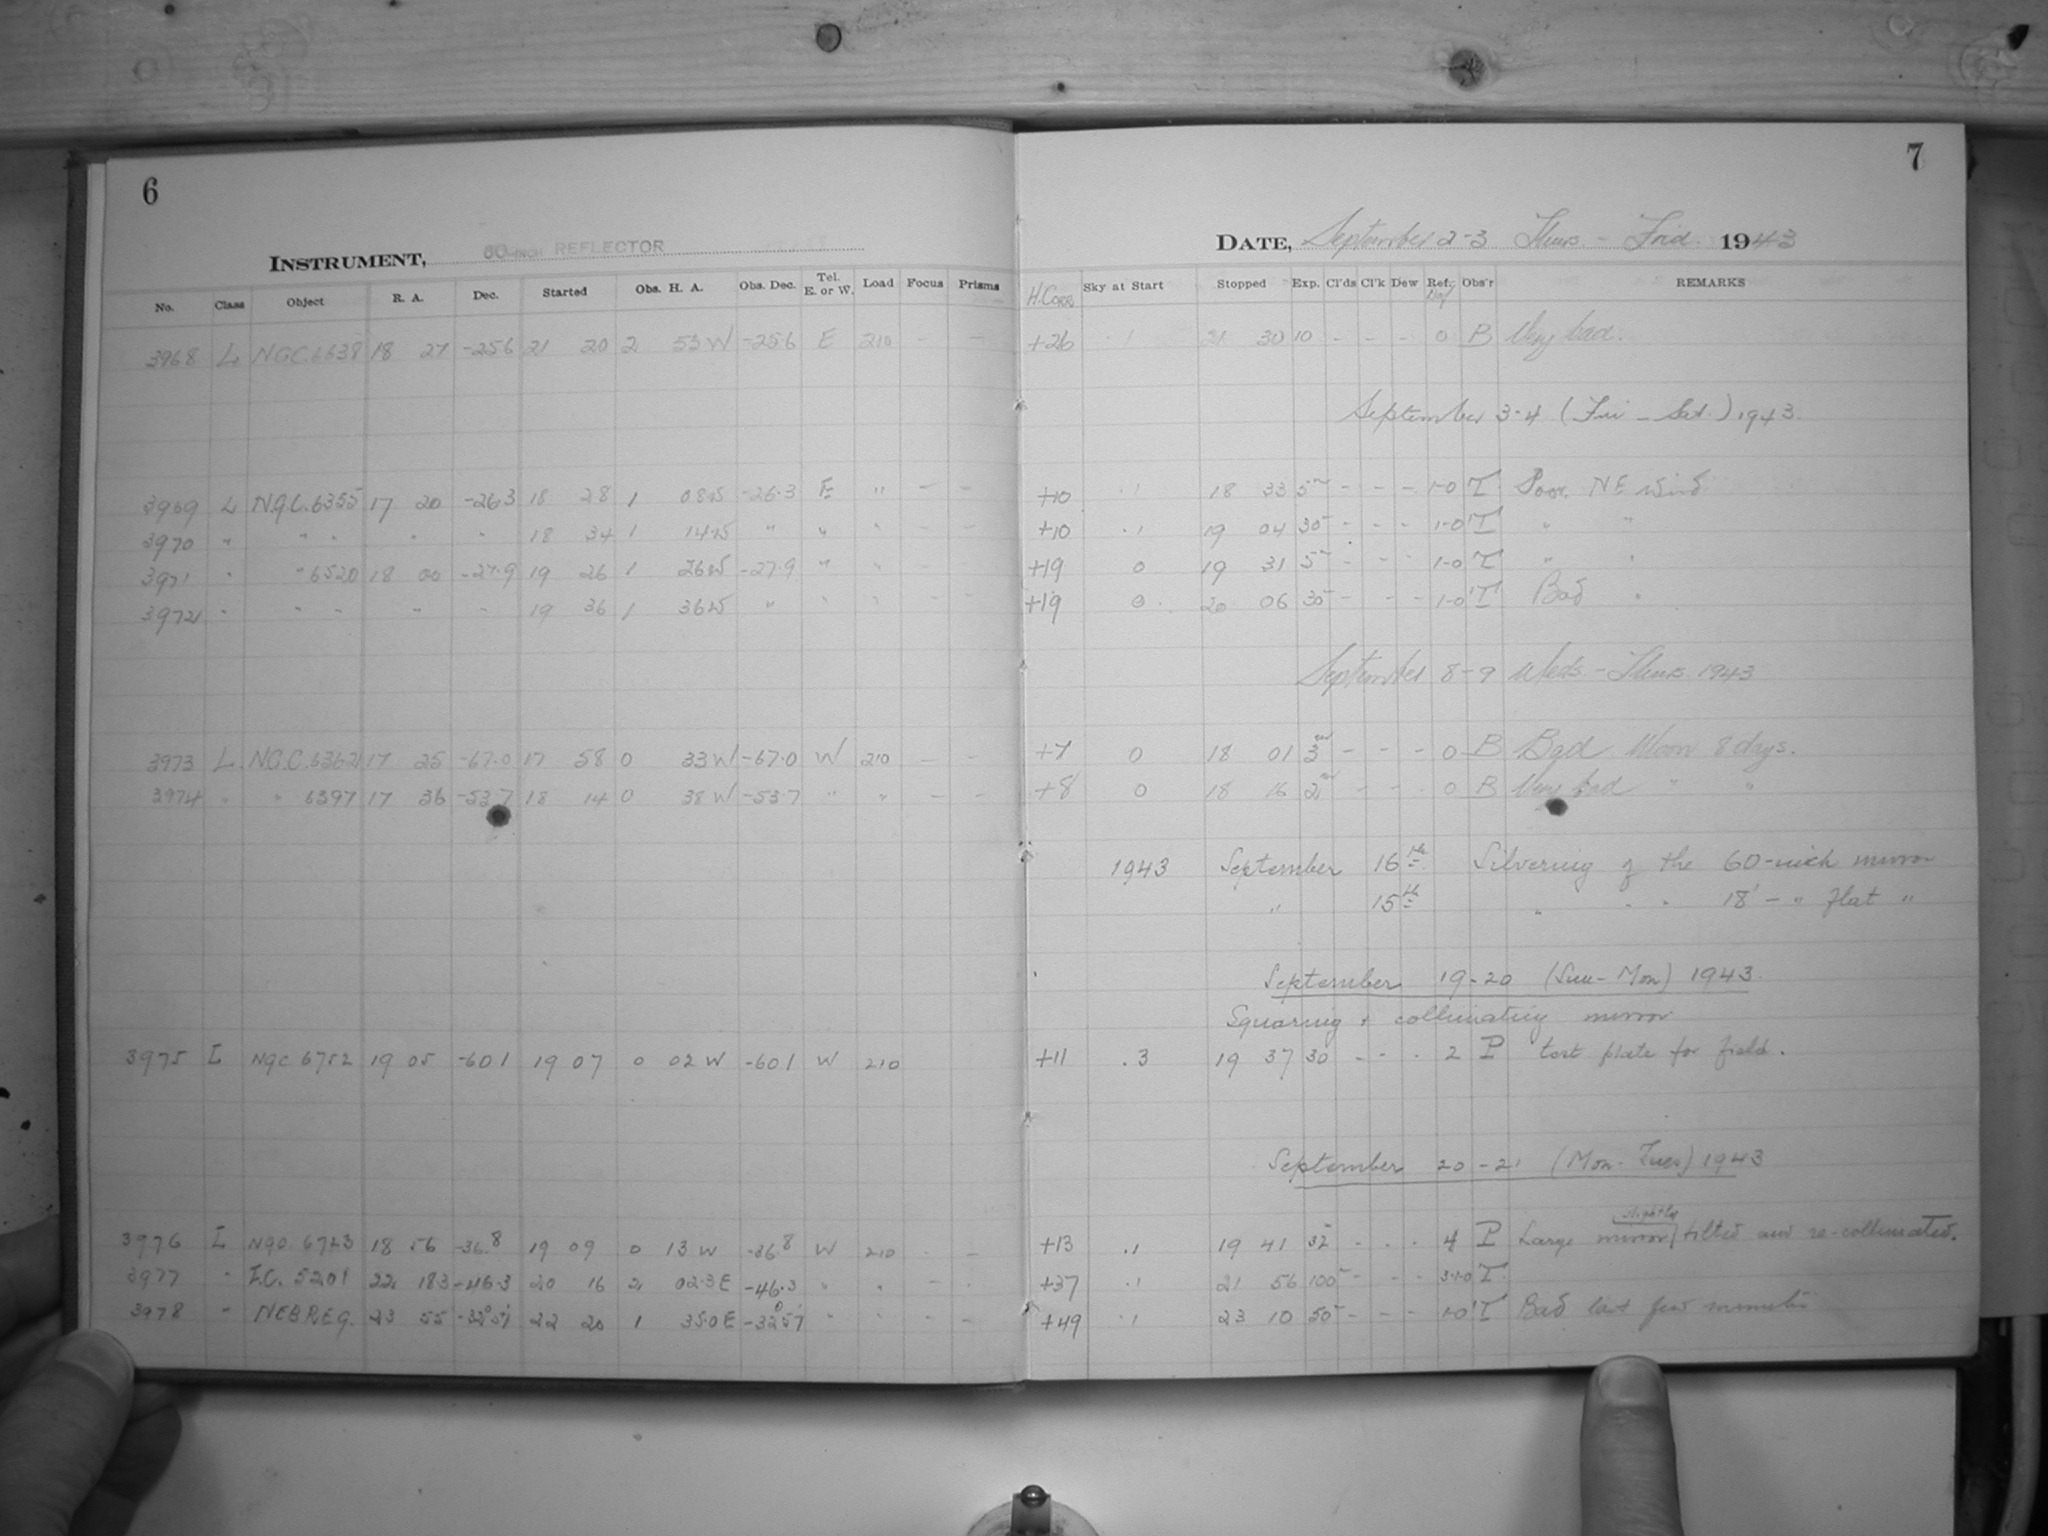 6
7
INSTRUMENT, 60-INCH REFLECTOR
DATE, September 2-3 Thurs. - Frid. 1943
No. Class Object R. A. Dec. Started Obs. H. A. Obs. Dec. Tel. E. or W. Load Focus Prisms H.Corr. Sky at Start Stopped Exp. Cl'ds Cl'k Dew Ref. Obs'r REMARKS
3968 L NGC 6638 18 27 -25.6 21 20 2 53 W -25.6 E 210 - - +26 .1 21 30 10 - - - 0 B Very bad.
September 3-4 (Fri - Sat.) 1943.
3969 L N.G.C. 6355 17 20 -26.3 18 28 1 08 W -26.3 E " - - +10 .1 18 33 5m - - - 1-0 T Poor. NE wind
3970 " " " " " 18 34 1 14 W " " " - - +10 .1 19 04 30 - - - 1-0 T " "
3971 " " 6520 18 00 -27.9 19 26 1 26 W -27.9 " " - - +19 0 19 31 5m - - - 1-0 T " "
3972 " " " " " 19 36 1 36 W " " " - - +19 0 20 06 30 - - - 1-0 T Bad "
September 8-9 Weds - Thurs 1943
3973 L N.G.C. 6362 17 25 -67.0 17 58 0 33 W -67.0 W 210 - - +7 0 18 01 3m - - - 0 B Bad. Moon 8 days.
3974 " " 6397 17 36 -53.7 18 14 0 38 W -53.7 " " - - +8 0 18 16 2m - - - 0 B Very bad " "
1943 September 16th Silvering of the 60-inch mirror
" 15th " " " 18 - " flat "
September 19-20 (Sun-Mon) 1943.
Squaring + collimating mirror
3975 L NGC 6752 19 05 -60.1 19 07 0 02 W -60.1 W 210 +11 .3 19 37 30 - - - 2 P test plate for field.
September 20-21 (Mon-Tues) 1943
slightly
3976 L NGC 6723 18 56 -36.8 19 09 0 13 W -36.8 W 210 - - +13 .1 19 41 32 - - - 4 P Large mirror tilted and re-collimated.
3977 " I.C. 5201 22 18.3 -46.3 20 16 2 02.3 E -46.3 " " - - +37 .1 21 56 100 - - - 3-1-0 T
3978 " NEB REG. 23 55 -32°57' 22 20 1 35.0 E -32°57' " " - - +49 .1 23 10 50 - - - 1-0 T Bad last few minutes